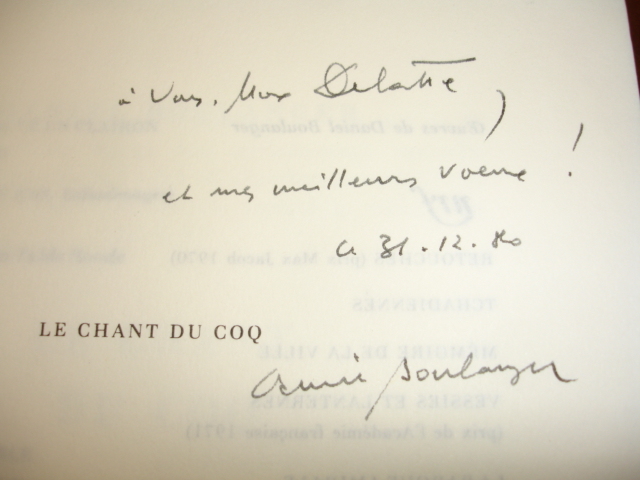 à Vous, Max Delattre,
et mes meilleurs voeux !
ce 31.12.80
LE CHANT DU COQ
Daniel Boulanger
Œuvres de Daniel Boulanger
nrf
RETOUCHES (prix Max Jacob 1970)
TCHADIENNES
MÉMOIRE DE LA VILLE
VESSIES ET LANTERNES
(prix de l'Académie française 1971)